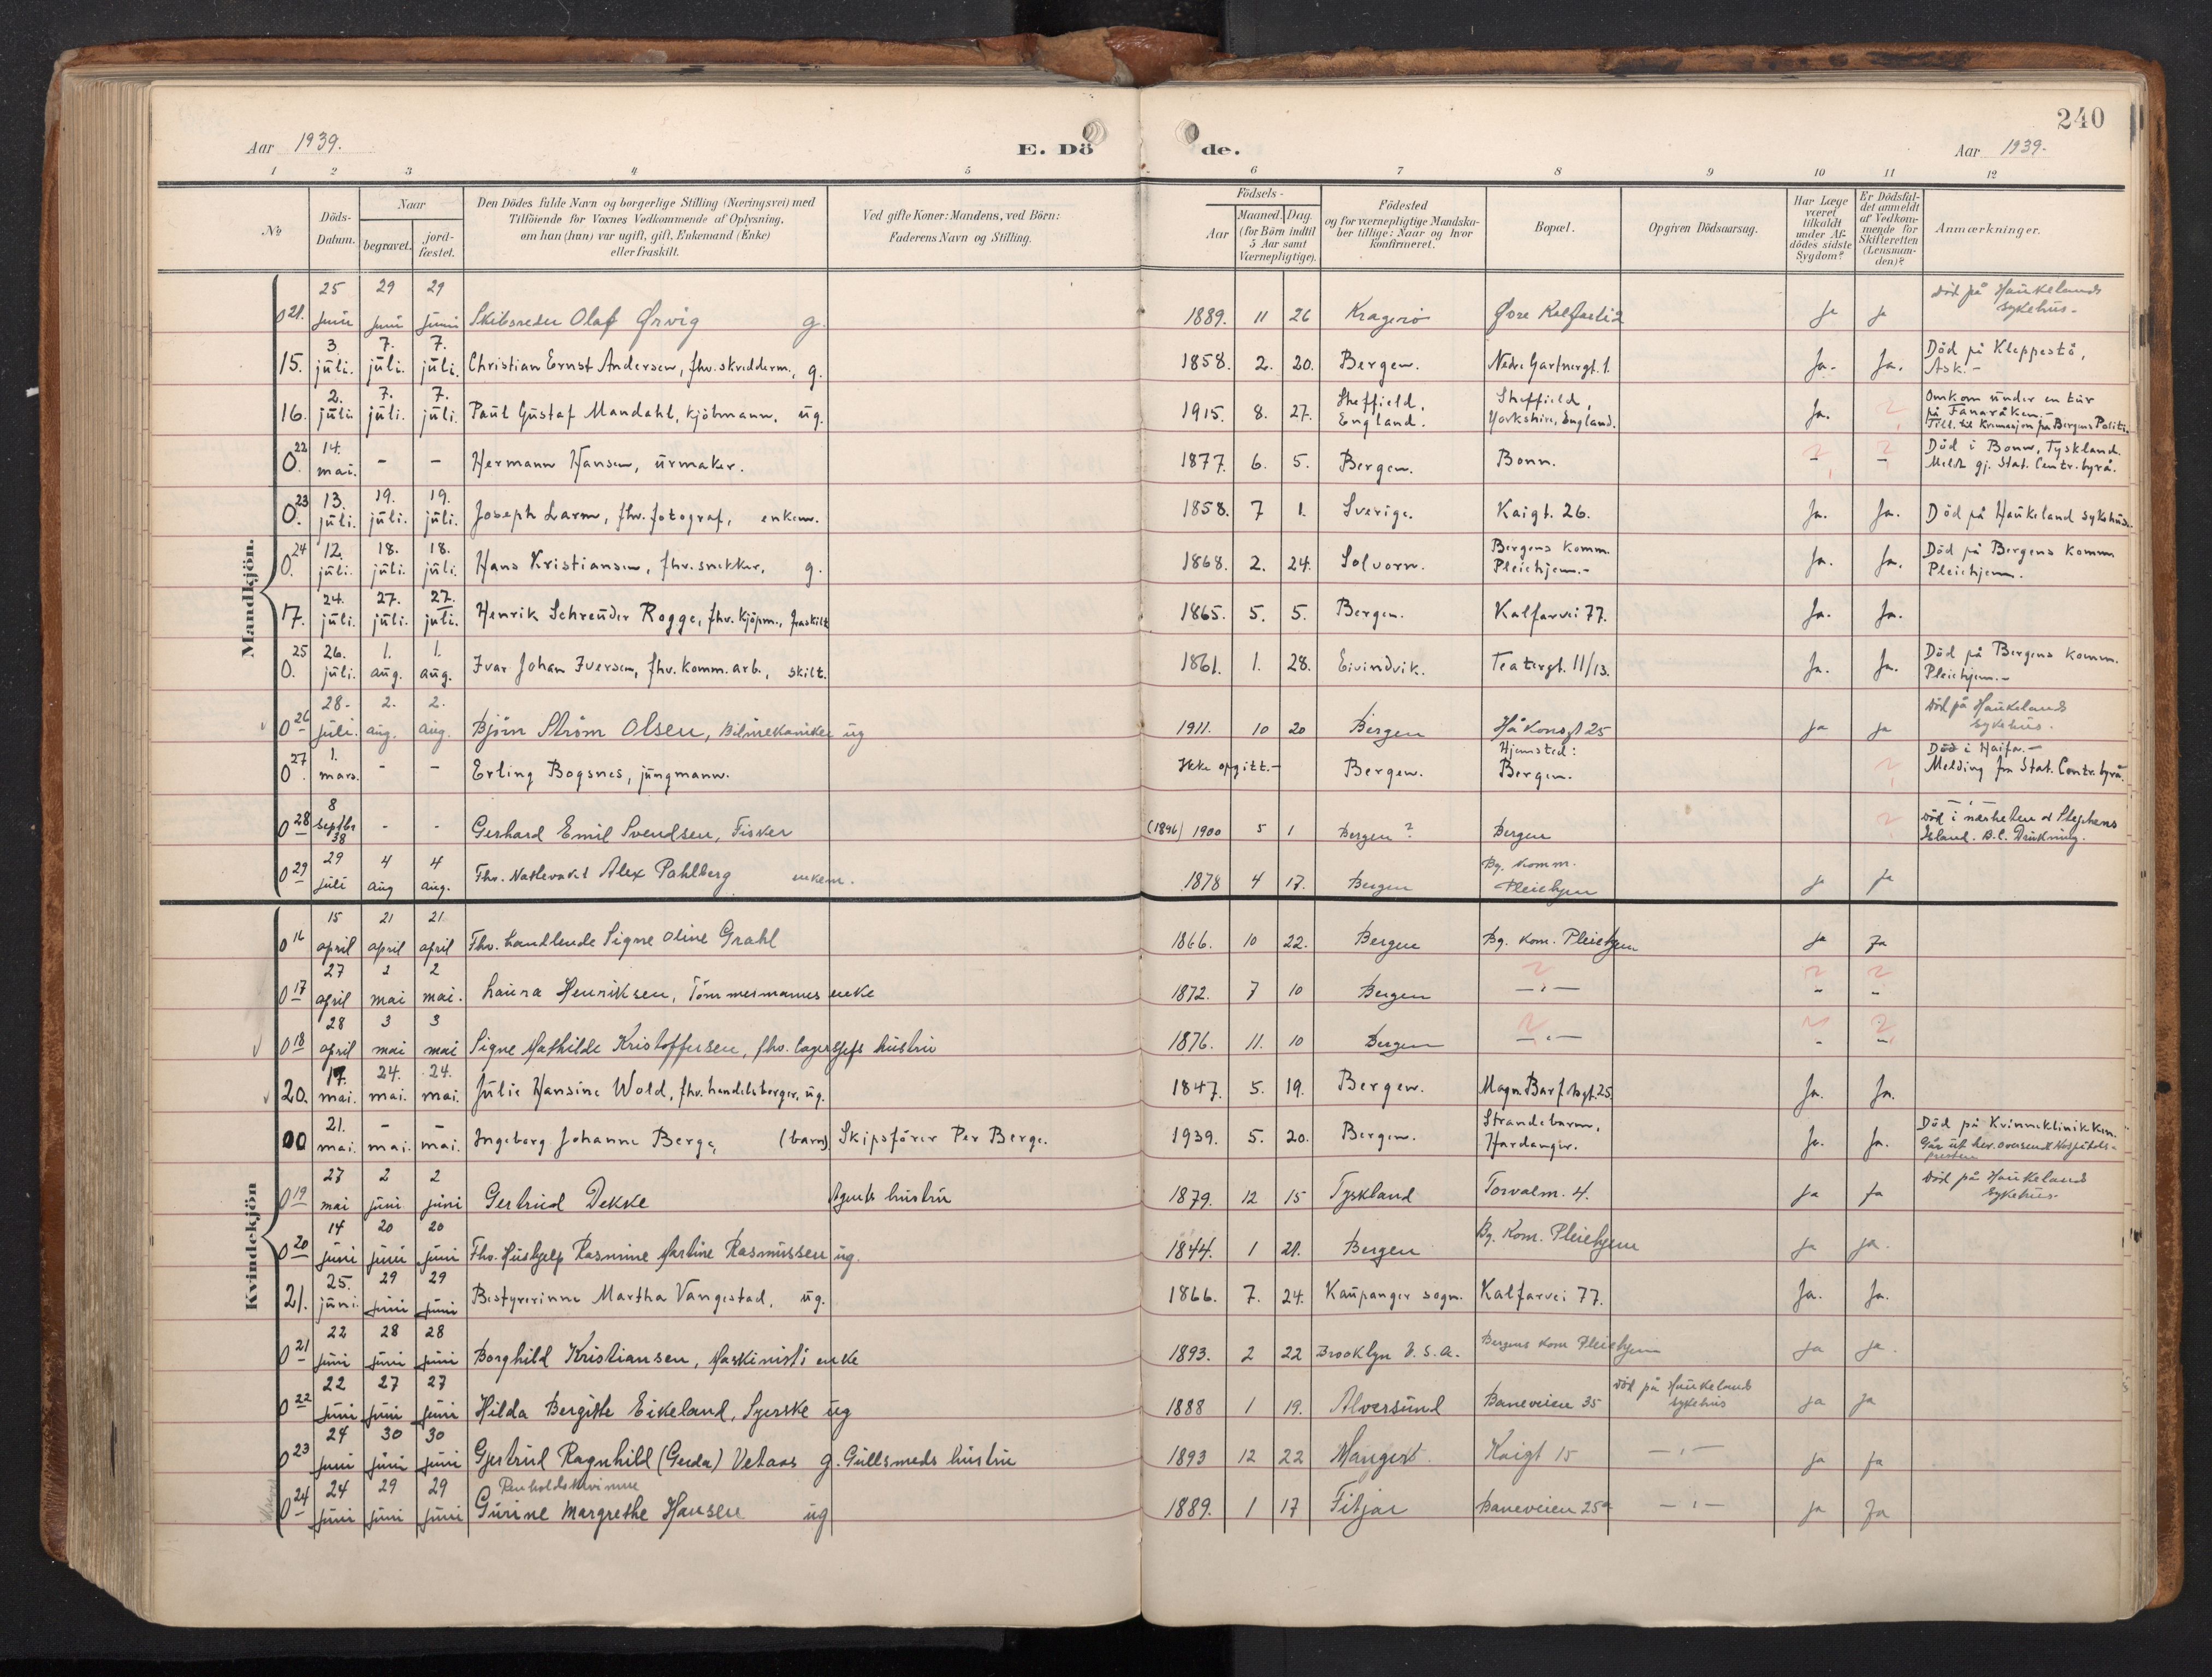 240
Aar 1939.
E. Dö
de.
Aar 1939.
1 2 3 4 5 6 7 8 9 10 11 12
No
Döds-Datum.
Naar
begravet.
jord-fæstet.
Den Dödes fulde Navn og borgerlige Stilling (Næringsvei) med
Tilföiende for Voxnes Vedkommende af Oplysning,
om han (hun) var ugift, gift, Enkemand (Enke)
eller fraskilt.
Ved gifte Koner: Mandens, ved Börn:
Faderens Navn og Stilling.
Födsels-
Aar
Maaned. Dag.
(for Börn indtil
5 Aar samt
Værnepligtige).
Födested
og for værnepligtige Mandska-
ber tillige: Naar og hvor
Konfirmeret.
Bopæl.
Opgiven Dödsaarsag.
Har Læge
været
tilkaldt
under Af-
dödes sidste
Sygdom?
Er Dödsfal-
det anmeldt
af Vedkom-
mende for
Skifteretten
(Lensman-
den)?
Anmærkninger.
Mandkjön.
0 21. 25 juni 29 juni 29 juni Skibsreder Olaf Ørvig g. 1889. 11 26 Kragerö Øvre Kalfarli 2 Ja Ja död på Haukelands sykehus.
15. 3. juli. 7. juli. 7. juli. Christian Ernst Andersen, fhv. skredderm., g. 1858. 2. 20. Bergen. Nedre Gartnergt. 1. Ja. Ja. Död på Kleppestö, Ask.-
16. 2. juli. 7. juli. 7. juli. Paul Gustaf Mandahl, kjöbmann, ug. 1915. 8. 27. Sheffield, England. Sheffield, Yorkshire, England. Ja. ? Omkom under en tur på Fanaråken.- Till. til kremasjon fra Bergens Politi.
0. 22 14. mai. - - Hermann Hansen, urmaker. 1877. 6. 5. Bergen. Bonn. - - Död i Bonn, Tyskland. Meldt gj. Stat. Centr. byrå.
0. 23 13. juli. 19. juli. 19. juli. Joseph Larm, fhv. fotograf, enkem. 1858. 7 1. Sverige. Kaigt. 26. Ja. Ja. Död på Haukeland sykehus.
0. 24 12. juli. 18. juli. 18. juli. Hans Kristiansen, fhv. snekker, g. 1868. 2. 24. Solvorn. Bergens Komm. Pleiehjem.- Ja. Ja. Död på Bergens Komm Pleiehjem.
17. 24. juli. 27. juli. 27. juli. Henrik Schreuder Rogge, fhv. kjöpm., fraskilt 1865. 5. 5. Bergen. Kalfarvei 77. Ja. Ja.
0. 25 26. juli. 1. aug. 1. aug. Ivar Johan Iversen, fhv. komm. arb., skilt. 1861. 1. 28. Eivindvik. Teatergt. 11/13. Ja. Ja. Död på Bergens Komm. Pleiehjem.-
0 26 28- juli. 2. aug. 2. aug. Björn Ström Olsen, Bilmekaniker ug 1911. 10 20 Bergen Håkonsgt 25 Ja Ja död på Haukelands sykehus.
0. 27 1. mars. - - Erling Bogsnes, jungmann. Ikke opgitt.- Bergen. Hjemsted: Bergen. ? Död i Haifa.- Melding fra Stat. Centr. byrå.
0 28 8 septbr 38 - - Gerhard Emil Svendsen, Fisker (1896) 1900 5 1 Bergen? Bergen ? död i nærheten av Stephens Island. B.C. Drukning.
0 29 29 juli 4 aug 4 aug. Fhv. Nattevakt Alex Pahlberg enkem. 1878 4 17. Bergen Bg. Komm. Pleiehjem Ja Ja
Kvindekjön
0 16 15 april 21 april 21 april Fhv. handlende Signe Oline Grahl 1866. 10 22. Bergen Bg. Kom. Pleiehjem Ja Ja
0 17 27 april 2 mai 2 mai. Laura Henriksen, Tömmermanns enke 1872. 7 10 Bergen -"- - -
0 18 28 april 3 mai 3 mai Signe Mathilde Kristoffersen, fhv. lagersjefs hustru 1876. 11. 10 Bergen -"- - -
20. 17. mai. 24. mai. 24. mai. Julie Hansine Wold, fhv. handelsborger, ug. 1847. 5. 19. Bergen. Magn. Barf.sgt. 25 Ja. Ja.
00 21. mai. - mai. - mai. Ingeborg Johanne Berge, (barn) Skipsförer Per Berge. 1939. 5. 20. Bergen. Strandebarm, Hardanger. Ja. Ja. Död på Kvinneklinikken. Går ut her. oversendt Hospitals-presten
0 19 27 mai 2 juni 2 juni Gertrud Dekke Agents hustru 1879. 12 15 Tyskland Torvalm. 4. Ja Ja Död på Haukelands sykehus-
0 20 14 juni 20 juni 20 juni Fhv. Hushjelp Rasmine Martine Rasmussen ug. 1844. 1 21. Bergen Bg. Kom. Pleiehjem Ja Ja.
21. 25. juni. 29 juni 29 juni Bestyrerinne Martha Vangestad, ug. 1866. 7. 24. Kaupanger sogn. Kalfarvei 77. Ja. Ja.
0 21 22 juni 28 juni 28 juni Borghild Kristiansen, Maskinists enke 1893. 2 22 Brooklyn U.S.A. Bergens Kom Pleiehjem Ja Ja.
0 22 22 juni 27 juni 27 juni Hilda Bergitte Eikeland, Syerske ug 1888 1 19. Alversund Baneveien 35 död på Haukelands sykehus Ja Ja
0 23 24 juni 30 juni 30 juni Gjertrud Ragnhild (Gerda) Vetaas g. Gullsmeds hustru 1893 12 22 Manger. Kaigt 15 -"- Ja Ja
0 24 24 juni 29 juni 29 juni Renholdskvinne Gurine Margrethe Hansen ug 1889. 1 17 Fitjar Baneveien 25a -"- Ja Ja